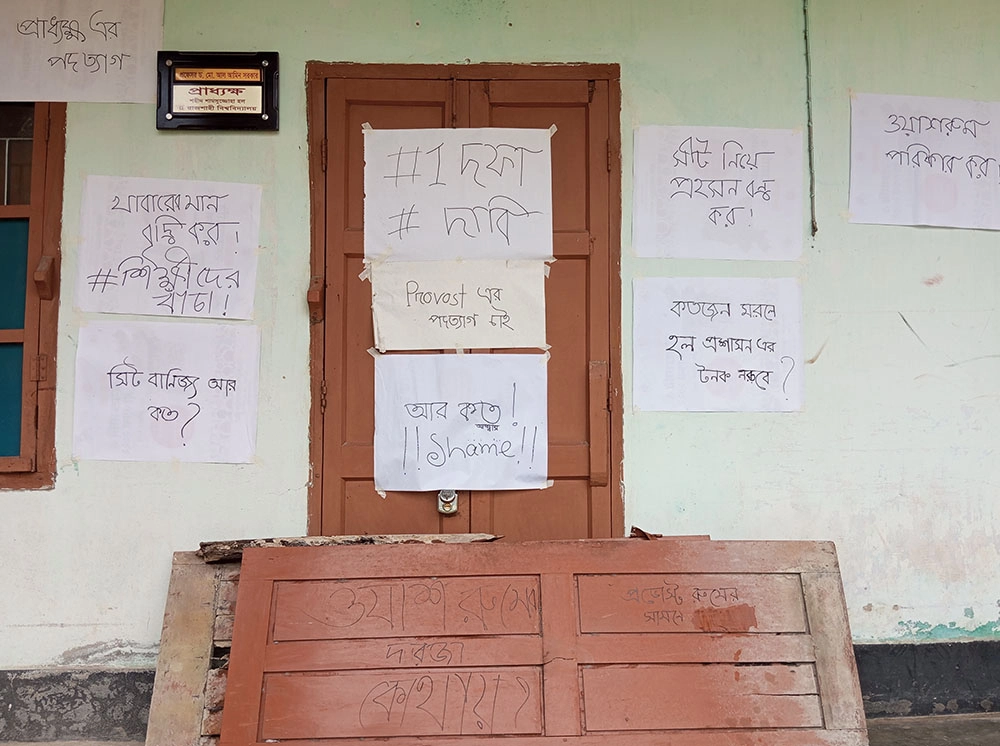 প্রাধ্যক্ষ এর
পদত্যাগ
প্রফেসর ড. মো. আল আমিন সরকার
প্রাধ্যক্ষ
শহীদ শামসুজ্জোহা হল
রাজশাহী বিশ্ববিদ্যালয়
খাবারের মান
বৃদ্ধি কর!
#শিক্ষার্থীদের
বাঁচা!
সিট বানিজ্য আর
কত?
#1 দফা
# দাবি
Provost এর
পদত্যাগ চাই
আর কতো!
!!Shame!!
সীট নিয়ে
প্রহসন বন্ধ
কর!
কতজন মরলে
হল প্রশাসন এর
টনক নড়বে?
ওয়াশরুম
পরিষ্কার কর!
ওয়াশ রুমের
দরজা
কোথায়?
প্রভোস্ট রুমের
সামনে